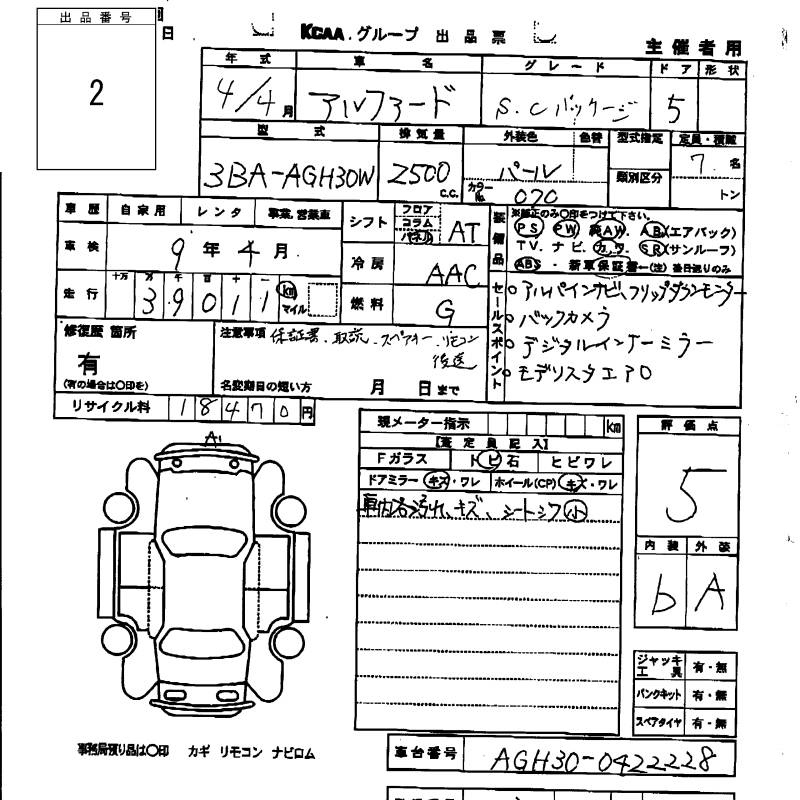 出品番号
2
日
KCAA.グループ 出品票
主催者用
年式 車名 グレード ドア 形状
4/4月 アルファード S.Cパッケージ 5
型式 排気量 外装色 色替 型式指定 定員・積載
3BA-AGH30W 2500 c.c. パール 7名
カラーNo. 070 類別区分 トン
車歴 自家用 レンタ 事業,営業車
シフト フロア コラム パネル AT
装備品 ※純正のみ〇印をつけて下さい。
PS PW AW AB(エアバック)
TV.ナビ.カワ.SR(サンルーフ)
ABS・新車保証書←(注)後日送りのみ
車検 9年4月
冷房 AAC
走行 十万 万 千 百 十 一 km マイル
39011
燃料 G
セールスポイント
○アルパインナビ、フリップダウンモニター
○バックカメラ
○デジタルインナーミラー
○モデリスタエアロ
修復歴 箇所
有
(有の場合は〇印を)
注意事項 保証書、取説、スペアキー、リモコン後送
名変期日の短い方 月 日まで
リサイクル料 18470円
現メーター指示 km
【査定員記入】
Fガラス トビ石 ヒビワレ
ドアミラー キズ・ワレ ホイール(CP) キズ・ワレ
車内各汚れ、キズ、シートシワ小
評価点
5
内装 外装
b A
A1
ジャッキ工具 有・無
パンクキット 有・無
スペアタイヤ 有・無
事務局預り品は〇印 カギ リモコン ナビロム
車台番号 AGH30-0422228